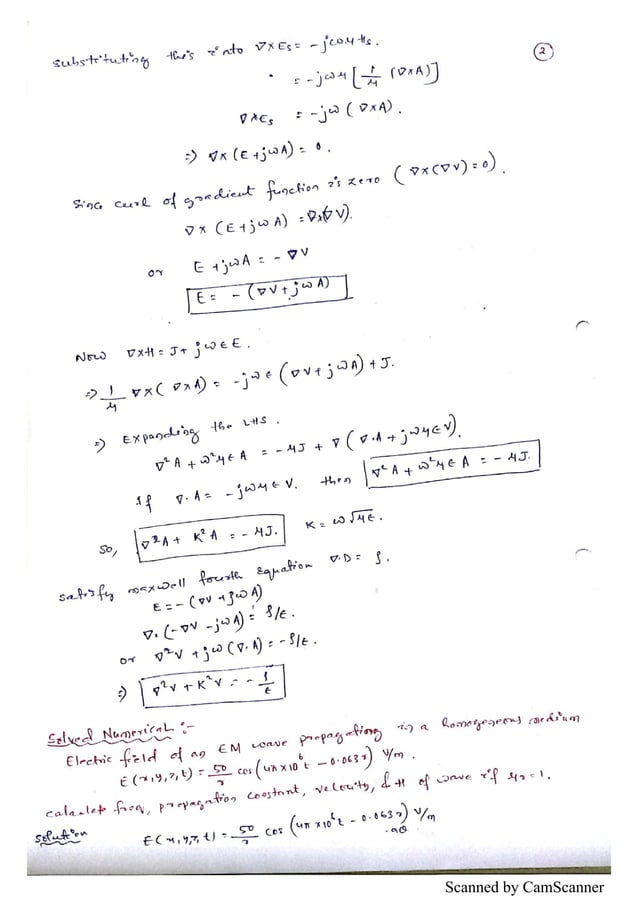 ②
Substituting this into ∇×Es = -jωμHs.
= -jωμ[1/μ (∇×A)]
∇×Es = -jω(∇×A).
=) ∇×(E+jωA) = 0.
Sinc curl of gradient function is zero (∇×(∇V)=0).
∇×(E+jωA) = ∇×(∇V).
or E+jωA = -∇V
E = -(∇V+jωA)
Now ∇×H = J+jωϵE.
=) 1/μ ∇×(∇×A) = -jωϵ(∇V+jωA)+J.
=) Expanding the LHS.
∇²A+ω²μϵA = -μJ+∇(∇.A+jωμϵV).
If ∇.A = -jωμϵV. then ∇²A+ω²μϵA = -μJ.
So, ∇²A+K²A = -μJ. K = ω√μϵ.
satisfy maxwell fourth equation ∇.D = ρ.
E = -(∇V+jωA)
∇.(-∇V-jωA) = ρ/ϵ.
or ∇²V+jω(∇.A) = -ρ/ϵ.
=) ∇²V+K²V = -ρ/ϵ
Solved Numerical :-
Electric field of an EM wave propagationg in a homogeneous medium
E(x,y,z,t) = 50/r cos(4π×10⁶t-0.063r) V/m.
calculate freq, propagation constant, velocity, & H of wave if μr=1.
Solution E(x,y,z,t) = 50/r cos(4π×10⁶t-0.063r) V/m
.aθ
Scanned by CamScanner